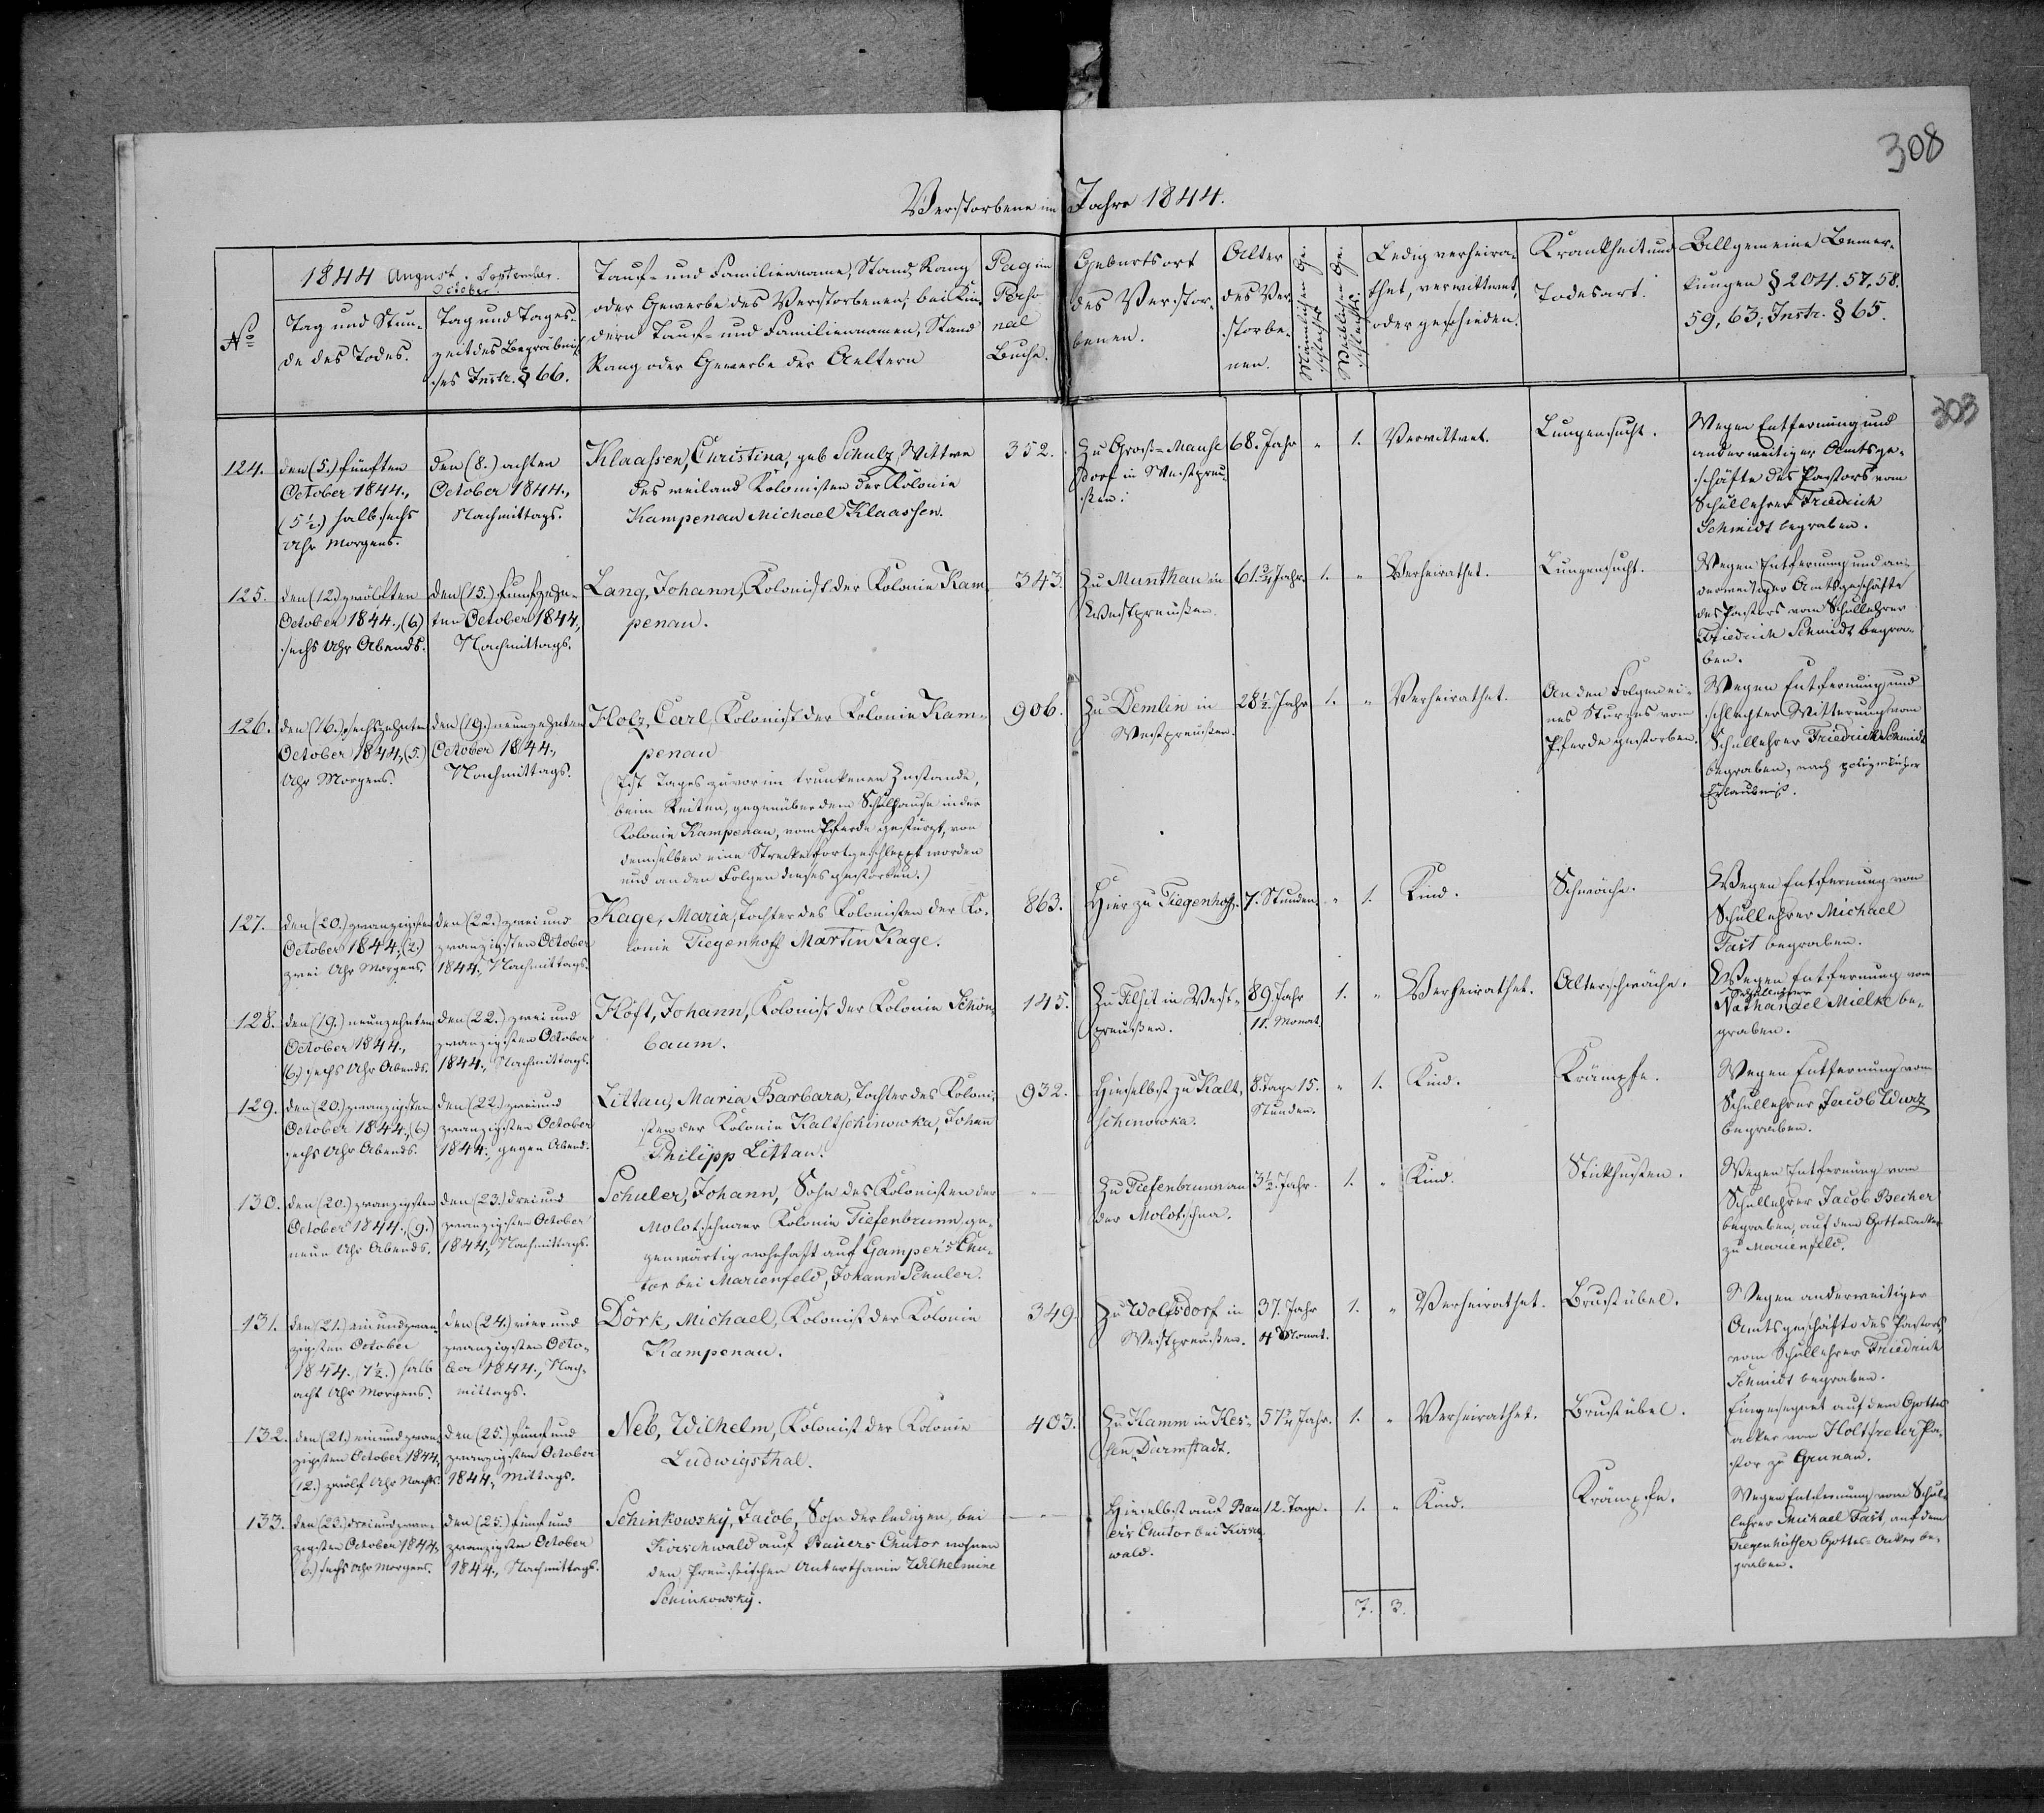 308
Verstorbene im Jahre 1844.
303
No
1844 August. September.
October
Tag und Stun-
de des Todes.
Tag und Tages-
zeit des Begräbnis-
ses Instr. § 66.
Tauf- und Familienname, Stand, Rang
oder Gewerbe des Verstorbenen, bei Kin-
dern Tauf- und Familiennamen, Stand
Rang oder Gewerbe der Aeltern
Pag im
Perso
nal
Buche.
Geburtsort
des Verstor-
benen.
Alter
des Ver-
storbe-
nen.
Männlichen Ge-
schlechts
Weiblichen Ge-
schlechts
Ledig verheira-
thet, verwittwet,
oder geschieden.
Krankheit und
Todesart.
Allgemeine Bemer-
kungen § 204. 57, 58.
59, 63; Instr. § 65.
124.
den (5.) fünften
October 1844.,
(5½.) halb sechs
Uhr Morgens.
den (8.) achten
October 1844.,
Nachmittags.
Klaassen, Christina, geb Schulz, Wittwe
des weiland Kolonisten der Kolonie
Kampenau Michael Klaassen.
352.
Zu Gross-Mausc
dorf in Westpreu-
ßen.
68. Jahr
"
1.
Verwittwet.
Lungensucht.
Wegen Entfernung und
anderweitiger Amtsge-
schäfte des Pastors vom
Schullehrer Friedrich
Schmidt begraben.
125.
den (12.) zwölften
October 1844., (6)
sechs Uhr Abends.
den (15.) funfzehn-
ten October 1844.,
Nachmittags.
Lang, Johann, Kolonist der Kolonie Kam-
penau.
343.
Zu Munthau in
Westpreußen.
61.¾ Jahr.
1.
"
Verheirathet.
Lungensucht.
Wegen Entfernung und an-
derweitiger Amtsgeschäfte
des Pastors vom Schullehrer
Friedrich Schmidt begra-
ben.
126.
den (16.) sechszehnten
October 1844., (5.)
Uhr Morgens.
den (19.) neunzehnten
October 1844.,
Nachmittags.
Holz, Carl, Kolonist der Kolonie Kam-
penau
(Ist Tages zuvor im trunkenen Zustande,
beim Reiten, gegenüber dem Schulhause in der
Kolonie Kampenau, vom Pferde gestürzt, von
demselben eine Strecke fortgeschleppt worden
und an den Folgen dieses gestorben.)
906.
Zu Demlin in
Westpreußen.
28½. Jahr
1.
"
Verheirathet.
An den Folgen ei-
nes Sturzes vom
Pferde gestorben.
Wegen Entfernung und
schlechter Witterung vom
Schullehrer Friedrich Schmidt
begraben, nach polizeilicher
Erlaubniß.
127.
den (20.) zwanzigsten
October 1844., (2.)
zwei Uhr Morgens.
den (22.) zwei und
zwanzigsten October
1844., Nachmittags.
Kage, Maria, Tochter des Kolonisten der Ko-
lonie Tiegenhoff Martin Kage.
863.
Hier zu Tiegenhoff.
7. Stunden.
"
1.
Kind.
Schwäche.
Wegen Entfernung vom
Schullehrer Michael
Fast begraben.
128.
den (19.) neunzehnten
October 1844.,
(6.) sechs Uhr Abends.
den (22.) zwei und
zwanzigsten October
1844., Nachmittags.
Höft, Johann, Kolonist der Kolonie Schön-
baum.
145.
Zu Tilsit in West-
preußen.
89. Jahr
11. Monat.
1.
"
Verheirathet.
Alterschwäche.
Wegen Entfernung vom
Schullehrer
Nathanael Mielke be-
graben.
129.
den (20.) zwanzigsten
October 1844., (6)
sechs Uhr Abends.
den (22.) zwei und
zwanzigsten October
1844., gegen Abend.
Littau, Maria Barbara, Tochter des Koloni-
sten der Kolonie Kaltschinowka, Johann
Philipp Littau.
932.
Hieselbst zu Kalt-
schinowka.
8. Tage 15.
Stunden.
"
1.
Kind.
Krämpfe.
Wegen Entfernung vom
Schullehrer Jacob Wurz
begraben.
130.
den (20.) zwanzigsten
October 1844., (9.)
neun Uhr Abends.
den (23.) drei und
zwanzigsten October
1844., Nachmittags.
Schuler, Johann, Sohn des Kolonisten der
Molotschnaer Kolonie Tiefenbrunn, ge-
genwärtig wohnhaft auf Gamper's Chu-
tor bei Marienfeld, Johann Schuler.
"
Zu Tiefenbrunn an
der Molotschna.
3½. Jahr.
1.
"
Kind.
Stickhusten.
Wegen Entfernung vom
Schullehrer Jacob Becher
begraben, auf dem Gottesacker
zu Marienfeld.
131.
den (21.) ein und zwan-
zigsten October
1844., (7½.) halb
acht Uhr Morgens.
den (24.) vier und
zwanzigsten Octo-
ber 1844., Nach-
mittags.
Dörk, Michael, Kolonist der Kolonie
Kampenau.
349.
Zu Wolfsdorf in
Westpreußen.
37. Jahr
4 Monat.
1.
"
Verheirathet.
Brustübel.
Wegen anderweitiger
Amtsgeschäfte des Pastors
vom Schullehrer Friedrich
Schmidt begraben.
132.
den (21.) ein und zwan-
zigsten October 1844.,
(12.) zwölf Uhr Nachts.
den (25.) fünf und
zwanzigsten October
1844., Mittags.
Neb, Wilhelm, Kolonist der Kolonie
Ludwigsthal.
403.
Zu Hamm in Hes-
sen Darmstadt.
57¼ Jahr.
1.
"
Verheirathet.
Brustübel.
Eingesegnet auf dem Gottes
acker von Holtfreter Pa-
stor zu Grunau.
133.
den (23.) drei und zwan-
zigsten October 1844.,
(6.) sechs Uhr Morgens.
den (25.) fünf und
zwanzigsten October
1844., Nachmittags.
Schinkowsky, Jacob, Sohn der ledigen, bei
Kirschwald auf Bauers Chutor wohnen
den Preussischen Unterthanin Wilhelmine
Schinkowsky.
"
Hieselbst auf Bau
ers Chutor bei Kirsch
wald.
12. Tage.
1.
"
Kind.
Krämpfe.
Wegen Entfernung vom Schul-
lehrer Michael Fast, auf dem
Tiegenhöffer Gottes-Acker be-
graben.
7.
3.